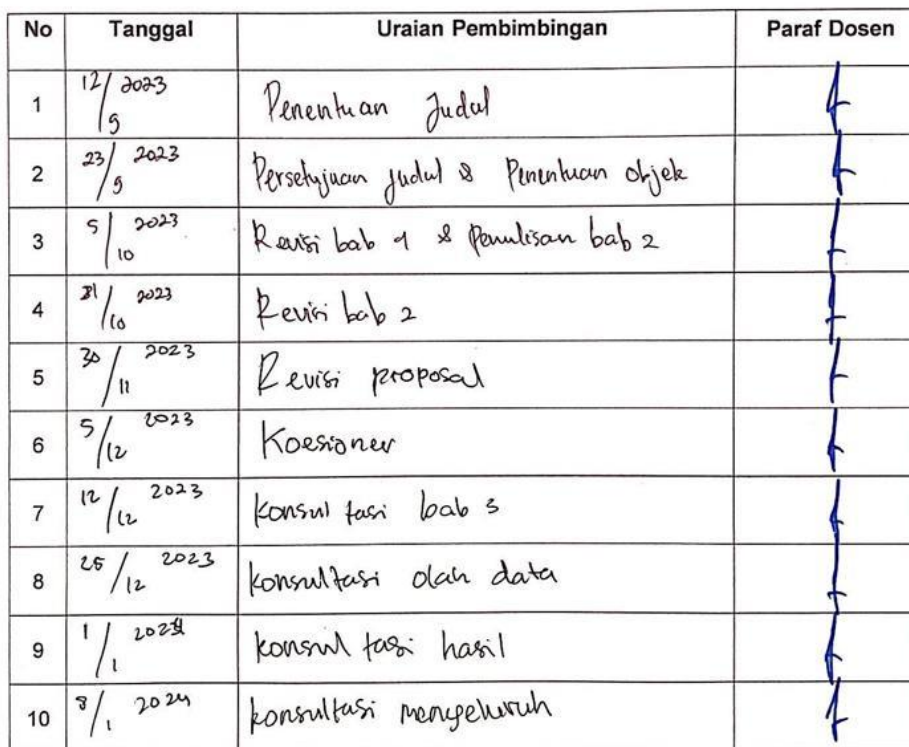 No Tanggal Uraian Pembimbingan Paraf Dosen
1 12/9 2023 Penentuan Judul
2 23/9 2023 Persetujuan Judul & Penentuan objek
3 5/10 2023 Revisi bab 1 & Penulisan bab 2
4 31/10 2023 Revisi bab 2
5 30/11 2023 Revisi proposal
6 5/12 2023 Koesioner
7 12/12 2023 Konsultasi bab 3
8 /12 2023 Konsultasi olah data
9 1/1 2024 Konsultasi hasil
10 8/1 2024 Konsultasi menyeluruh